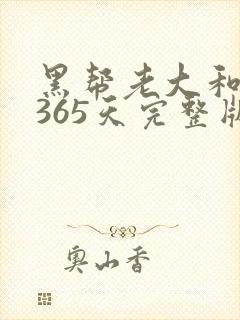 黑帮老大和
365天完整版
奥山香